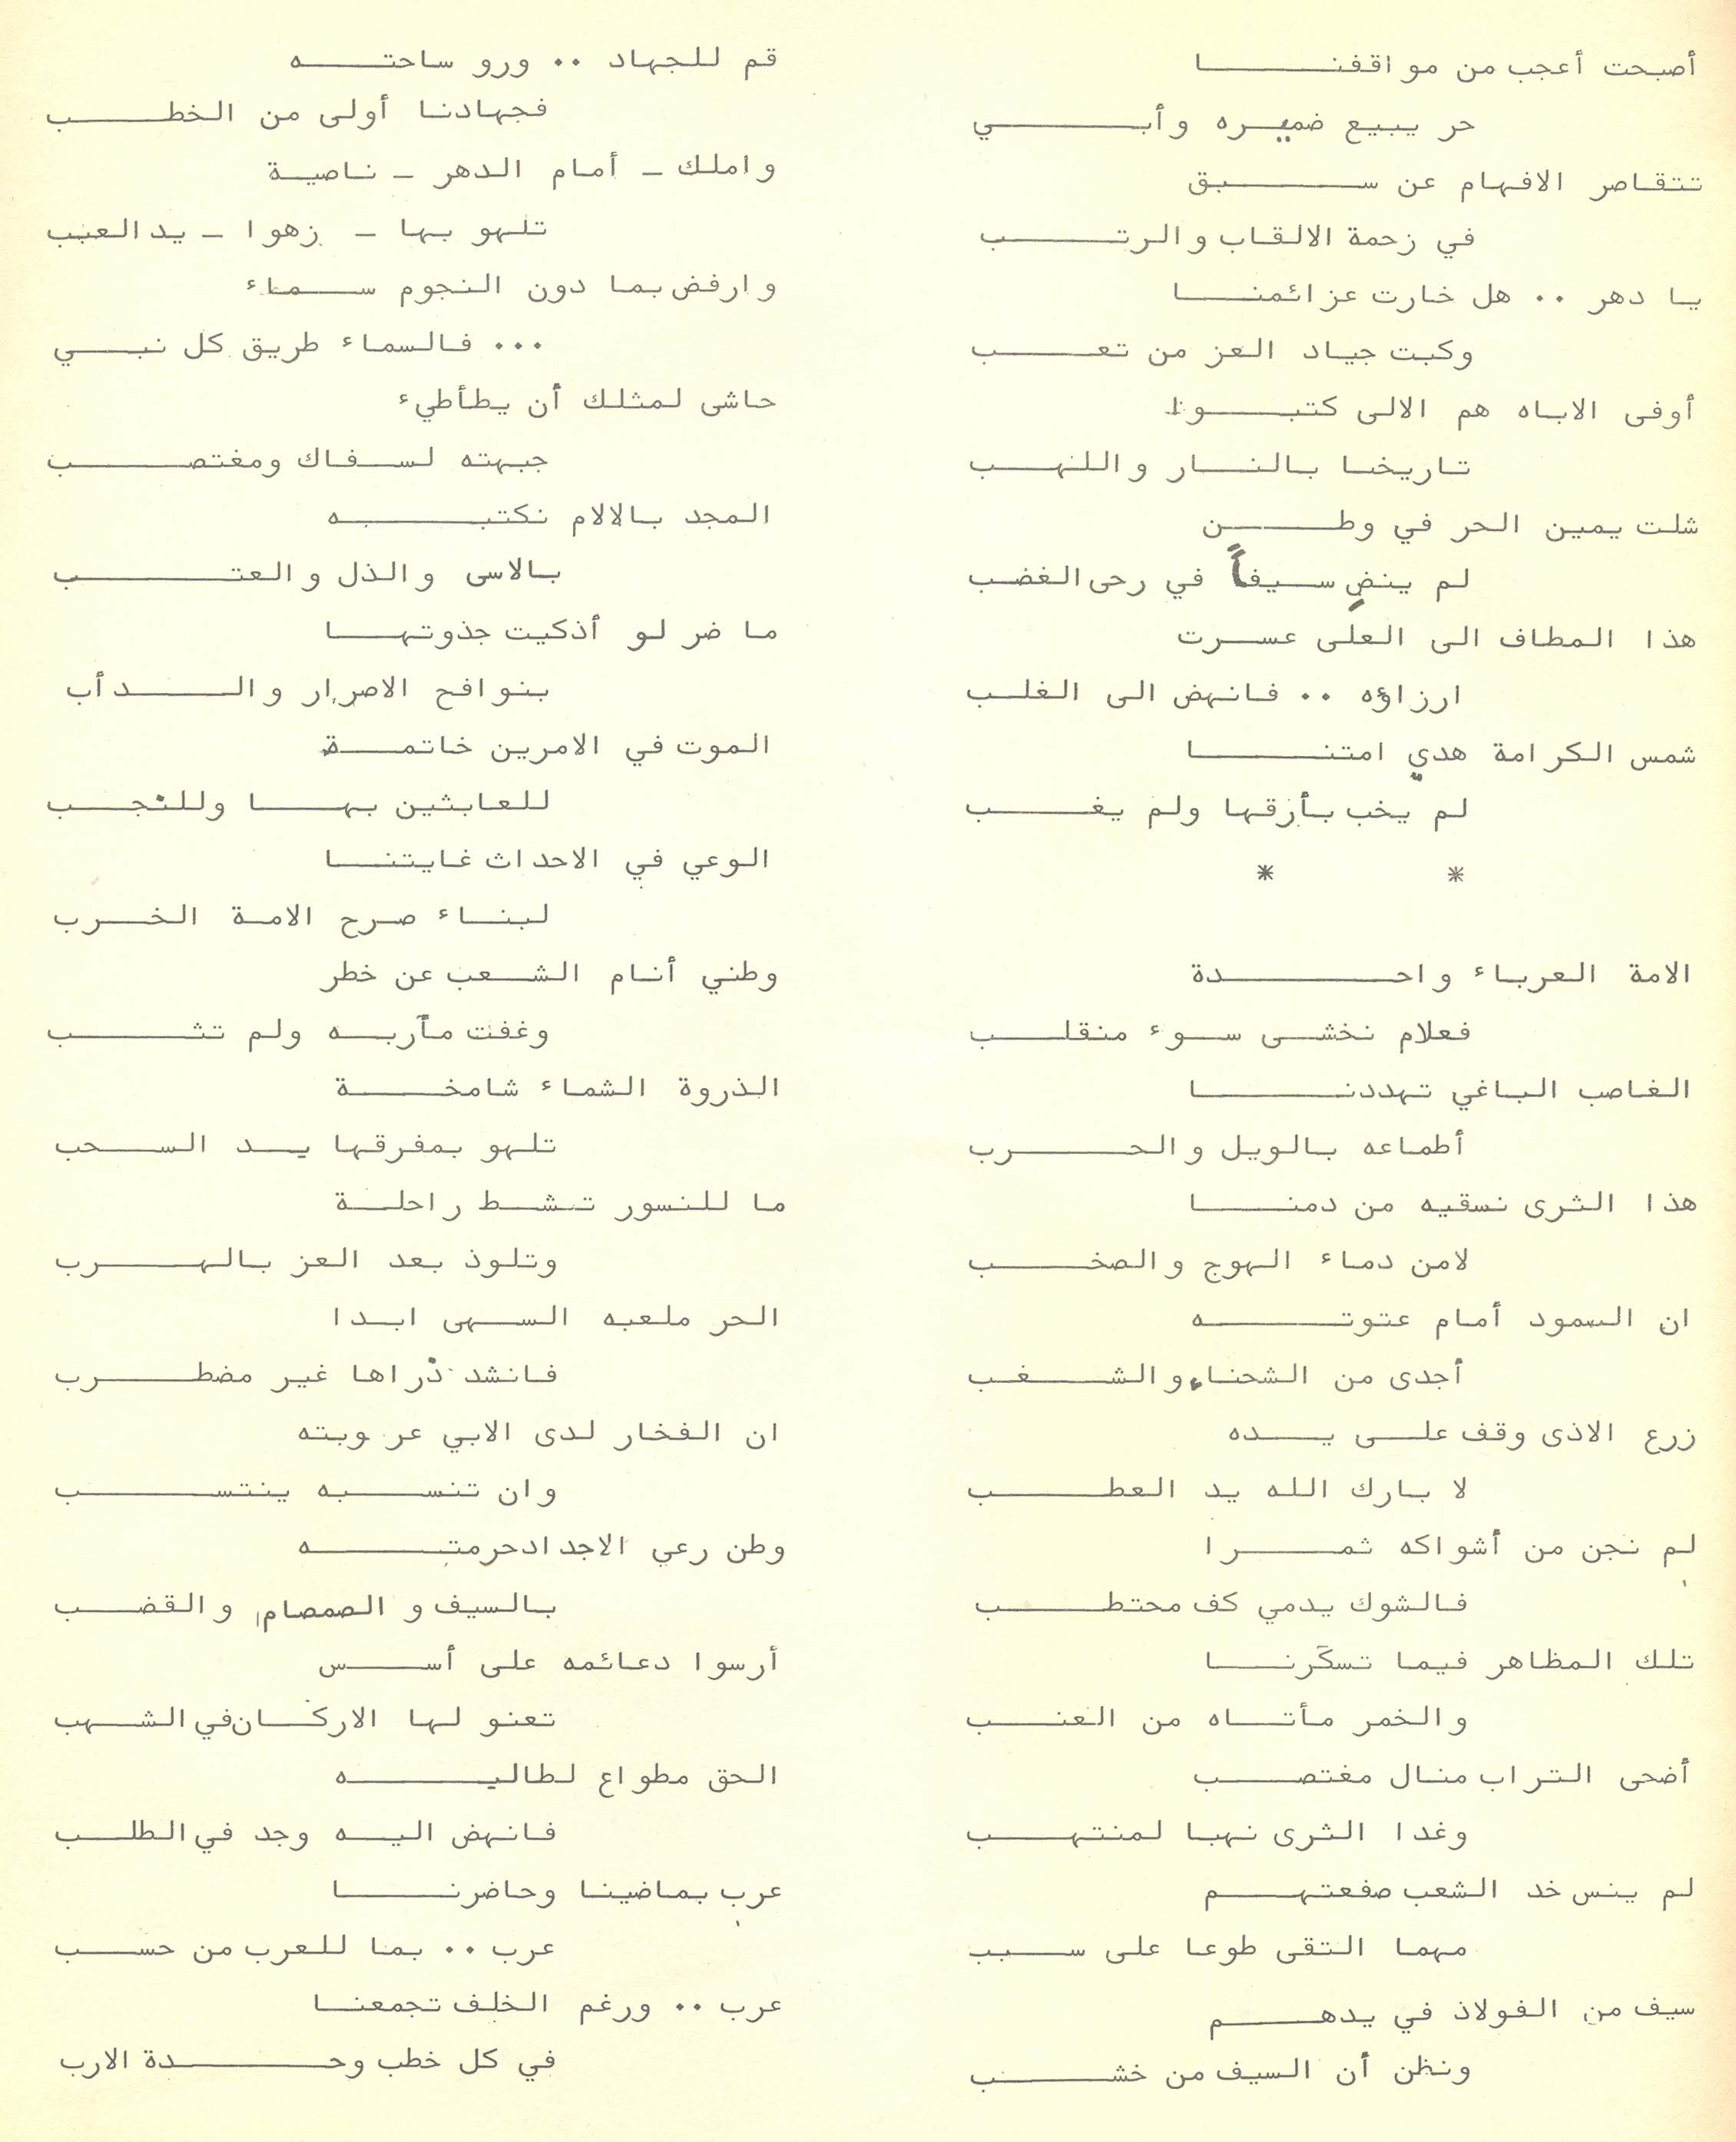 أصبحت أعجب من مواقفنا
حر يبيع ضميره وأبي
تتقاصر الافهام عن سبق
في زحمة الالقاب والرتب
يا دهر .. هل خارت عزائمنا
وكبت جياد العز من تعب
أوفى الاباه هم الالى كتبوا
تاريخا بالنار واللهب
شلت يمين الحر في وطن
لم ينضِ سيفاً في رحى الغضب
هذا المطاف الى العلى عسرت
ارزاؤه .. فانهض الى الغلب
شمس الكرامة هدي امتنا
لم يخب بأزقها ولم يغب
* *
الامة العرباء واحدة
فعلام نخشى سوء منقلب
الغاصب الباغي تهددنا
أطماعه بالويل والحرب
هذا الثرى نسقيه من دمنا
لامن دماء الهوج والصخب
ان الصمود أمام عتوته
أجدى من الشحناء والشغب
زرع الاذى وقف على يده
لا بارك الله يد العطب
لم نجن من أشواكه ثمرا
فالشوك يدمي كف محتطب
تلك المظاهر فيما تسكّرنا
والخمر مأتاه من العنب
أضحى التراب منال مغتصب
وغدا الثرى نهبا لمنتهب
لم ينس خد الشعب صفعتهم
مهما التقى طوعا على سبب
سيف من الفولاذ في يدهم
ونظن أن السيف من خشب
قم للجهاد .. ورو ساحته
فجهادنا أولى من الخطب
واملك - أمام الدهر - ناصية
تلهو بها - زهوا - يد العبب
وارفض بما دون النجوم سماء
... فالسماء طريق كل نبي
حاشى لمثلك أن يطأطيء
جبهته لسفاك ومغتصب
المجد بالالام نكتبه
بالاسى والذل والعتب
ما ضر لو أذكيت جذوتها
بنوافح الاصرار والدأب
الموت في الامرين خاتمة
للعابثين بها وللنجب
الوعي في الاحداث غايتنا
لبناء صرح الامة الخرب
وطني أنام الشعب عن خطر
وغفت مآربه ولم تثب
الذروة الشماء شامخة
تلهو بمفرقها يد السحب
ما للنسور تشط راحلة
وتلوذ بعد العز بالهرب
الحر ملعبه السهى ابدا
فانشد ذراها غير مضطرب
ان الفخار لدى الابي عروبته
وان تنسبه ينتسب
وطن رعي الاجداد حرمته
بالسيف و الصمصام والقضب
أرسوا دعائمه على أسس
تعنو لها الاركان في الشهب
الحق مطواع لطاليه
فانهض اليه وجد في الطلب
عرب بماضينا وحاضرنا
عرب .. بما للعرب من حسب
عرب .. ورغم الخلف تجمعنا
في كل خطب وحدة الارب